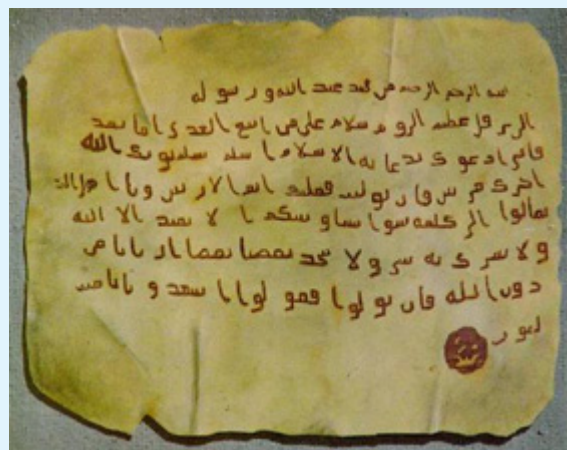 بسم الرحمن الرحيم من محمد عبد الله ورسوله
الى هرقل عظيم الروم سلام على من اتبع الهدى اما بعد
فانى ادعوك بدعاية الاسلام اسلم تسلم يوتك الله
اجرك مرتين فان توليت فعليك اثم الاريسين ويا اهل
تعالوا الى كلمة سوا بيننا وبينكم الا نعبد الا الله
ولا نشرك به شيا ولا يتخذ بعضنا بعضا اربابا من
دون الله فان تولوا فقولوا اشهدوا بانا مس
لمون